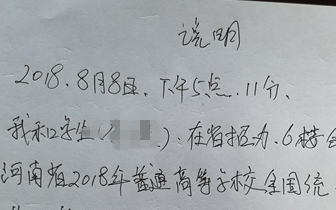 说明
2018.8月8日.下午5点.11分、
我和学生( )、在省招办.6楼会
河南省2018年普通高等学校全国统